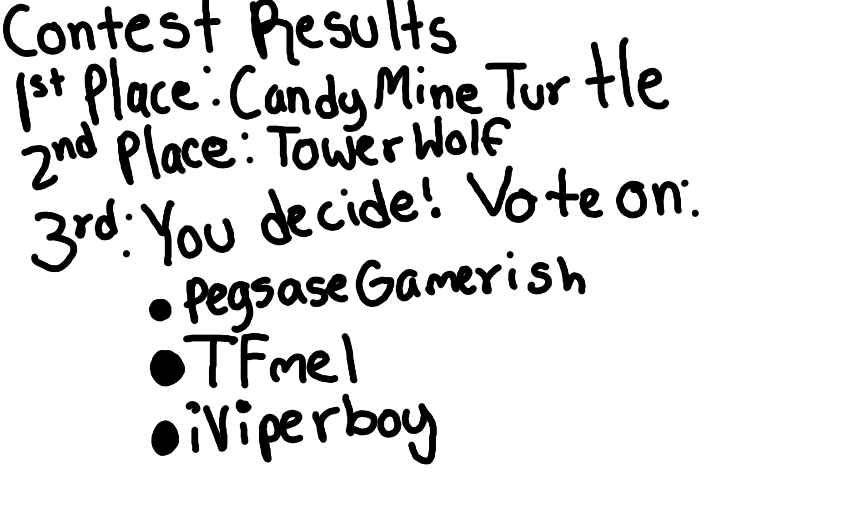 Contest Results
1st Place: CandyMineTurtle
2nd Place: TowerWolf
3rd: You decide! Vote on:
• PegsaseGamerish
• TFmel
• iViperboy